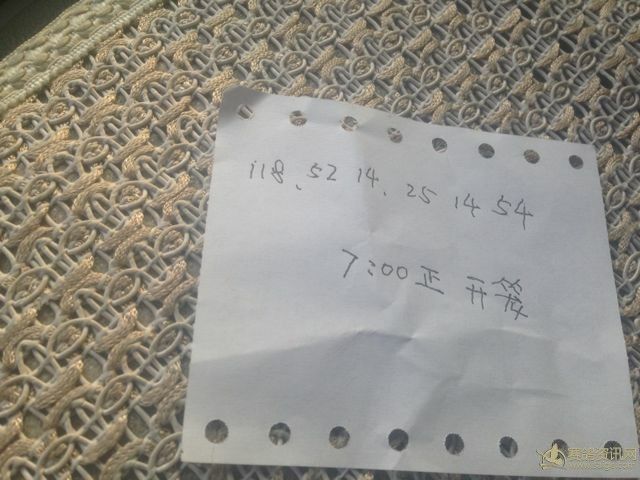 118、52 14、25 14 54
7:00正 开笼
赛鸽资讯网